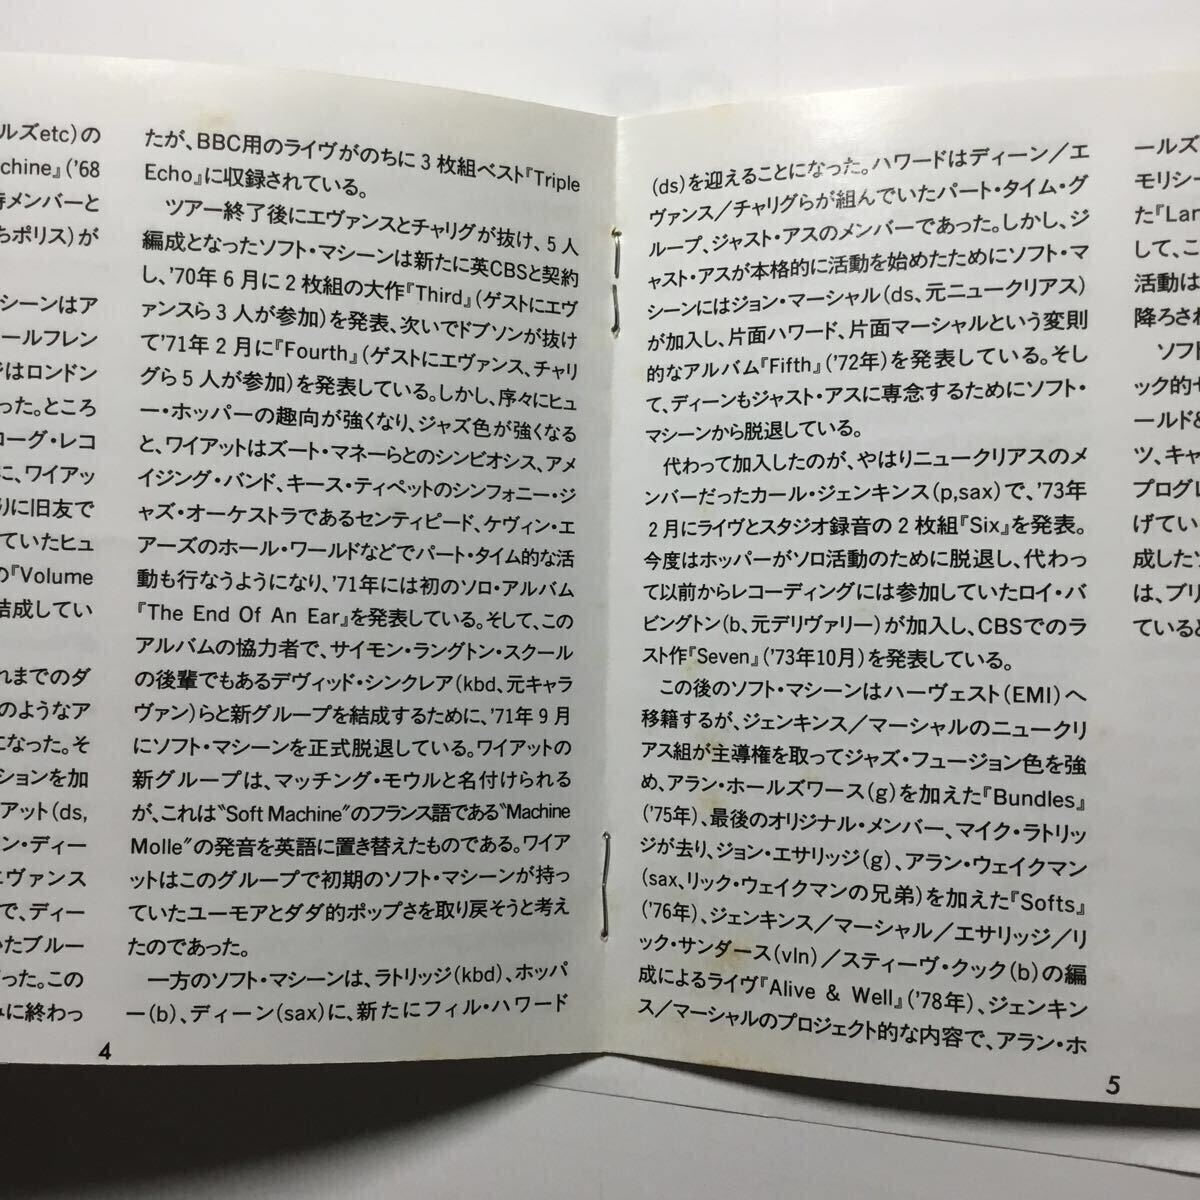 ルズetc)の
achine』('68
時メンバーと
ちポリス)が
マシーンはア
ールフレン
ではロンドン
った。ところ
ローグ・レコ
に、ワイアッ
りに旧友で
ていたヒュ
の『Volume
結成してい
れまでのダ
のようなア
になった。そ
ションを加
アット(ds,
ン・ディー
エヴァンス
で、ディー
いたブルー
だった。この
みに終わっ
たが、BBC用のライヴがのちに3枚組ベスト『Triple
Echo』に収録されている。
　ツアー終了後にエヴァンスとチャリグが抜け、5人
編成となったソフト・マシーンは新たに英CBSと契約
し、'70年6月に2枚組の大作『Third』(ゲストにエヴ
ァンスら3人が参加)を発表、次いでドブソンが抜け
て'71年2月に『Fourth』(ゲストにエヴァンス、チャリ
グら5人が参加)を発表している。しかし、序々にヒュ
ー・ホッパーの趣向が強くなり、ジャズ色が強くなる
と、ワイアットはズート・マネーらとのシンビオシス、アメ
イジング・バンド、キース・ティペットのシンフォニー・ジ
ャズ・オーケストラであるセンティピード、ケヴィン・エ
アーズのホール・ワールドなどでパート・タイム的な活
動も行なうようになり、'71年には初のソロ・アルバム
『The End Of An Ear』を発表している。そして、この
アルバムの協力者で、サイモン・ラングトン・スクール
の後輩でもあるデヴィッド・シンクレア(kbd、元キャラ
ヴァン)らと新グループを結成するために、'71年9月
にソフト・マシーンを正式脱退している。ワイアットの
新グループは、マッチング・モウルと名付けられる
が、これは“Soft Machine”のフランス語である“Machine
Molle”の発音を英語に置き替えたものである。ワイア
ットはこのグループで初期のソフト・マシーンが持っ
ていたユーモアとダダ的ポップさを取り戻そうと考え
たのであった。
　一方のソフト・マシーンは、ラトリッジ(kbd)、ホッパ
ー(b)、ディーン(sax)に、新たにフィル・ハワード
4
(ds)を迎えることになった。ハワードはディーン／エ
ヴァンス／チャリグらが組んでいたパート・タイム・グ
ループ、ジャスト・アスのメンバーであった。しかし、ジ
ャスト・アスが本格的に活動を始めたためにソフト・マ
シーンにはジョン・マーシャル(ds、元ニュークリアス)
が加入し、片面ハワード、片面マーシャルという変則
的なアルバム『Fifth』('72年)を発表している。そし
て、ディーンもジャスト・アスに専念するためにソフト・
マシーンから脱退している。
　代わって加入したのが、やはりニュークリアスのメ
ンバーだったカール・ジェンキンス(p,sax)で、'73年
2月にライヴとスタジオ録音の2枚組『Six』を発表。
今度はホッパーがソロ活動のために脱退し、代わっ
て以前からレコーディングには参加していたロイ・バ
ビングトン(b、元デリヴァリー)が加入し、CBSでのラ
スト作『Seven』('73年10月)を発表している。
　この後のソフト・マシーンはハーヴェスト(EMI)へ
移籍するが、ジェンキンス／マーシャルのニュークリ
アス組が主導権を取ってジャズ・フュージョン色を強
め、アラン・ホールズワース(g)を加えた『Bundles』
('75年)、最後のオリジナル・メンバー、マイク・ラトリッ
ジが去り、ジョン・エサリッジ(g)、アラン・ウェイクマン
(sax、リック・ウェイクマンの兄弟)を加えた『Softs』
('76年)、ジェンキンス／マーシャル／エサリッジ／リ
ック・サンダース(vln)／スティーヴ・クック(b)の編
成によるライヴ『Alive & Well』('78年)、ジェンキン
ス／マーシャルのプロジェクト的な内容で、アラン・ホ
5
ールズ
モリシー
た『Lan
して、こ
活動は
降ろされ
　ソフト
ック的サ
ールド&
ツ、キャ
プログレ
げてい
成したソ
は、ブリ
ていると